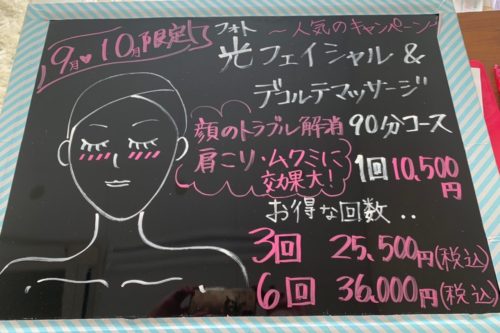 9月♥10月限定!
～人気のキャンペーン～
フォト
光フェイシャル&
デコルテマッサージ
顔のトラブル解消
肩こり・ムクミに
効果大!
90分コース
1回10,500円
お得な回数‥
3回 25,500円(税込)
6回 36,000円(税込)